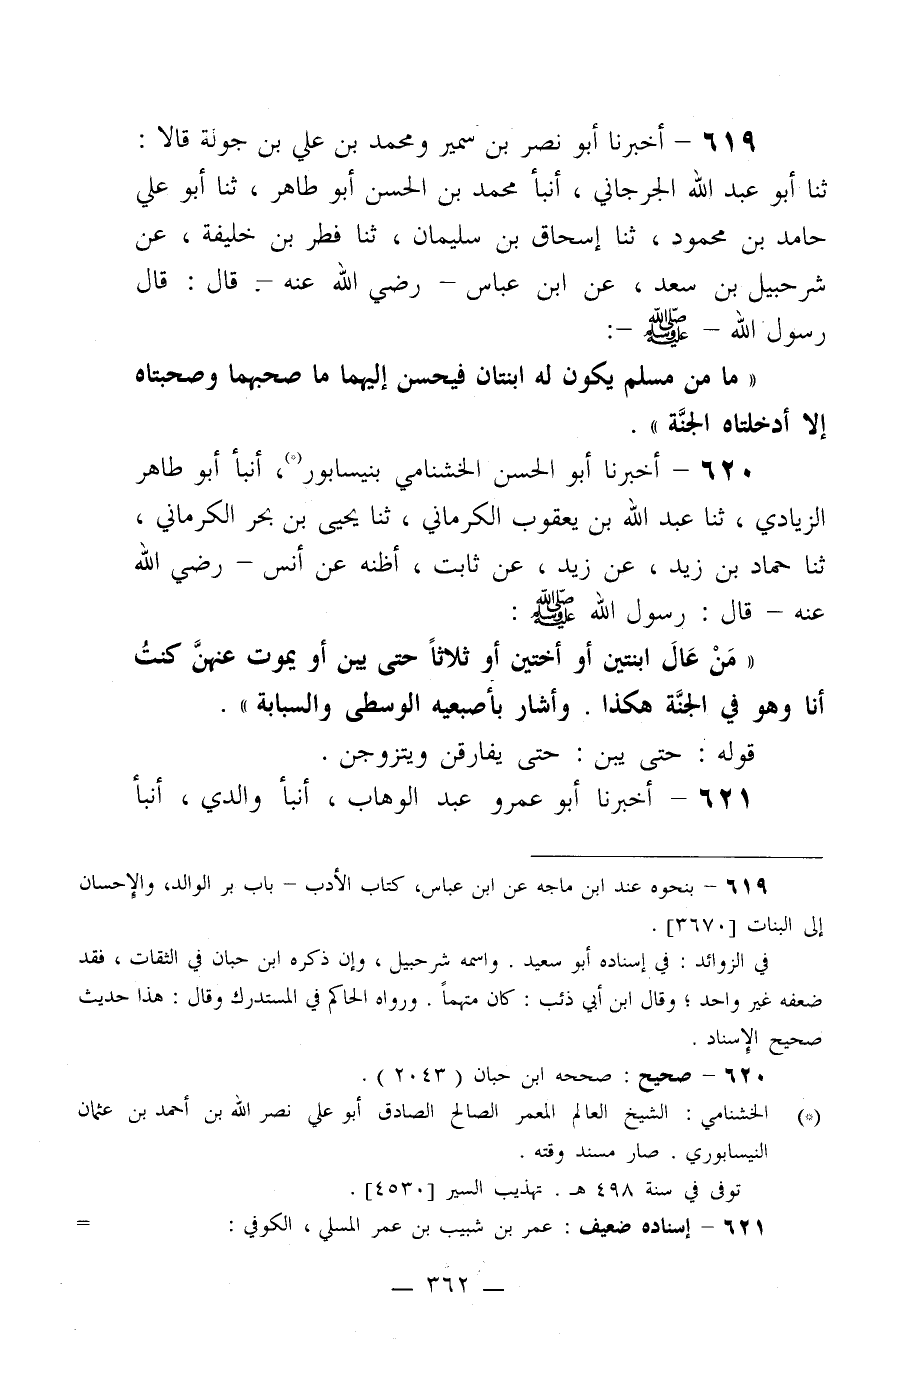 ٦١٩ – أخبرنا أبو نصر بن سمير ومحمد بن علي بن جولة قالا :
ثنا أبو عبد الله الجرجاني ، أنبأ محمد بن الحسن أبو طاهر ، ثنا أبو علي
حامد بن محمود ، ثنا إسحاق بن سليمان ، ثنا فطر بن خليفة ، عن
شرحبيل بن سعد ، عن ابن عباس – رضي الله عنه – قال : قال
رسول الله – ﷺ –:
« ما من مسلم يكون له ابنتان فيحسن إليهما ما صحبهما وصحبتاه
إلا أدخلتاه الجنَّة » .
٦٢٠ – أخبرنا أبو الحسن الخشنامي بنيسابور(*)، أنبأ أبو طاهر
الزيادي ، ثنا عبد الله بن يعقوب الكرماني ، ثنا يحيى بن بحر الكرماني ،
ثنا حماد بن زيد ، عن زيد ، عن ثابت ، أظنه عن أنس – رضي الله
عنه – قال : رسول الله ﷺ :
« مَنْ عَالَ ابنتين أو أختين أو ثلاثاً حتى يبن أو يموت عنهنَّ كنتُ
أنا وهو في الجنَّة هكذا . وأشار بأصبعيه الوسطى والسبابة » .
قوله : حتى يبن : حتى يفارقن ويتزوجن .
٦٢١ – أخبرنا أبو عمرو عبد الوهاب ، أنبأ والدي ، أنبأ
٦١٩ – بنحوه عند ابن ماجه عن ابن عباس، كتاب الأدب – باب بر الوالد، والإحسان
إلى البنات [٣٦٧٠] .
في الزوائد : في إسناده أبو سعيد . واسمه شرحبيل ، وإن ذكره ابن حبان في الثقات ، فقد
ضعفه غير واحد ؛ وقال ابن أبي ذئب : كان متهماً . ورواه الحاكم في المستدرك وقال : هذا حديث
صحيح الإسناد .
٦٢٠ – صحيح : صححه ابن حبان ( ٢٠٤٣ ) .
(*) الخشنامي : الشيخ العالم المعمر الصالح الصادق أبو علي نصر الله بن أحمد بن عثمان
النيسابوري . صار مسند وقته .
توفى في سنة ٤٩٨ هـ . تهذيب السير [٤٥٣٠] .
٦٢١ – إسناده ضعيف : عمر بن شبيب بن عمر المسلي ، الكوفي : =
— ٣٦٢ —